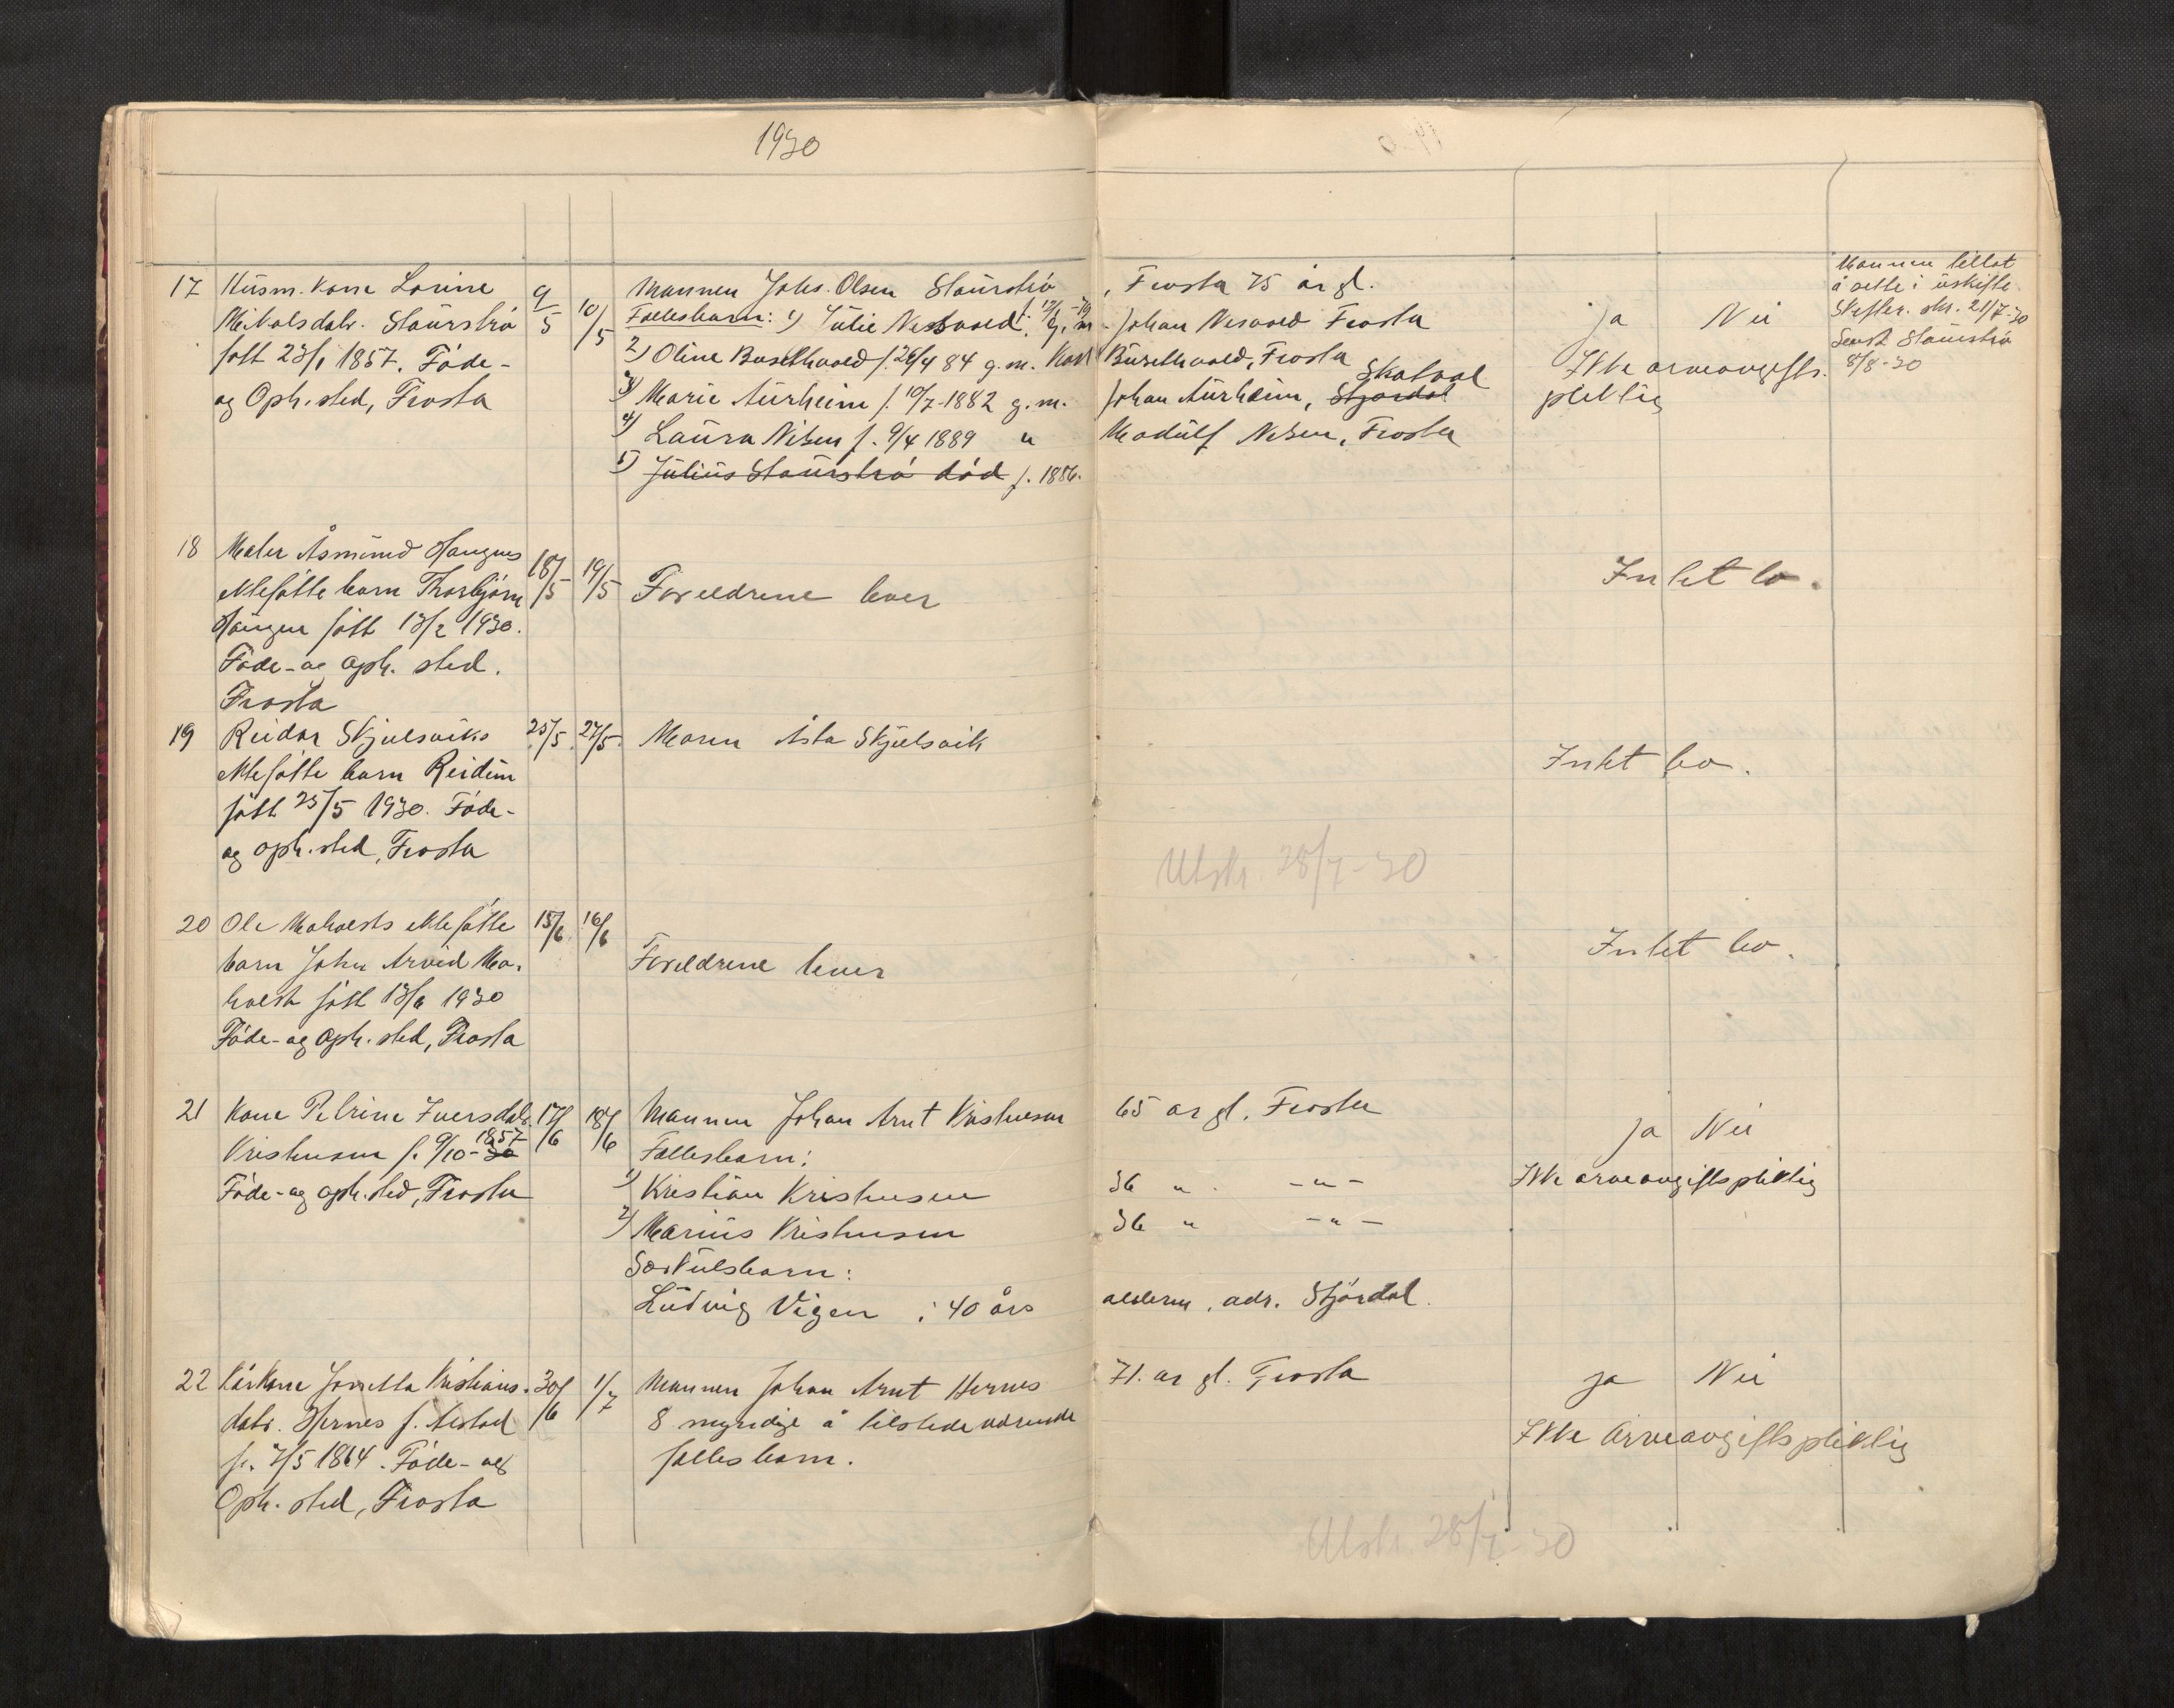 1930
17 Husm. kone Lorine
Mikalsdatr. Staurstrø
født 23/1 1857. Føde-
og Oph. sted, Frosta
9/5 10/5
Mannen Johs. Olsen Staurstrø, Frosta 75 år gl.
Fællesbarn: 1) Julie Nesvold g. m. Johan Nesvold Frosta
2) Oline Busethvold f. 26/4 84 g. m. Karl Busethvold, Frosta
3) Marie Aurheim f. 10/7-1882 g. m. Johan Aurheim, Stjørdal Skatval
4) Laura Nilsen f. 9/4 1889 " Modulf Nilsen, Frosta
5) Julius Staurstrø død f. 1886.
ja Nei
Ikke arveavgifts-
pliktig
Mannen tillot
å sitte i uskifte
Skifter. skr. 21/7-30
Sendt Staurstrø
8/8-30
18 Maler Åsmund Haugens
ektefødte barn Thorbjørn
Haugen født 13/2 1930.
Føde- og oph. sted.
Frosta
18/5 19/5 Foreldrene lever
Intet bo.
19 Reidar Skjelsviks
ektefødte barn Reidun
født 25/5 1930. Føde-
og oph. sted, Frosta
25/5 27/5 Moren Åsta Skjelsvik
Intet bo.
Utskr. 28/7-30
20 Ole Makvests ektefødte
barn John Arvid Ma-
kvest født 13/6 1930
Føde- og oph. sted, Frosta
15/6 16/6
Foreldrene lever
Intet bo.
21 Kone Petrine Iversdatr.
Kristensen f. 9/10-30 1857
Føde- og oph. sted, Frosta
17/6 18/6 Mannen Johan Arnt Kristensen 65 år gl. Frosta
Fællesbarn:
1) Kristian Kristensen 36 " - " -
2) Marius Kristensen 36 " - " -
Særkulsbarn:
Ludvig Vigen i 40 års alderen, adr. Stjørdal.
ja Nei
Ikke arveavgiftspliktig
22 Kårkone Jonetta Kristians-
datr. Hernes f. Aistad
f. 7/5 1864. Føde- og
Oph. sted, Frosta
30/6 1/7 Mannen Johan Arnt Hernes 71. år gl. Frosta
8 myndige å tilstedeværende
fellesbarn.
ja Nei
Ikke Arveavgiftspliktig
Utskr. 28/7-30